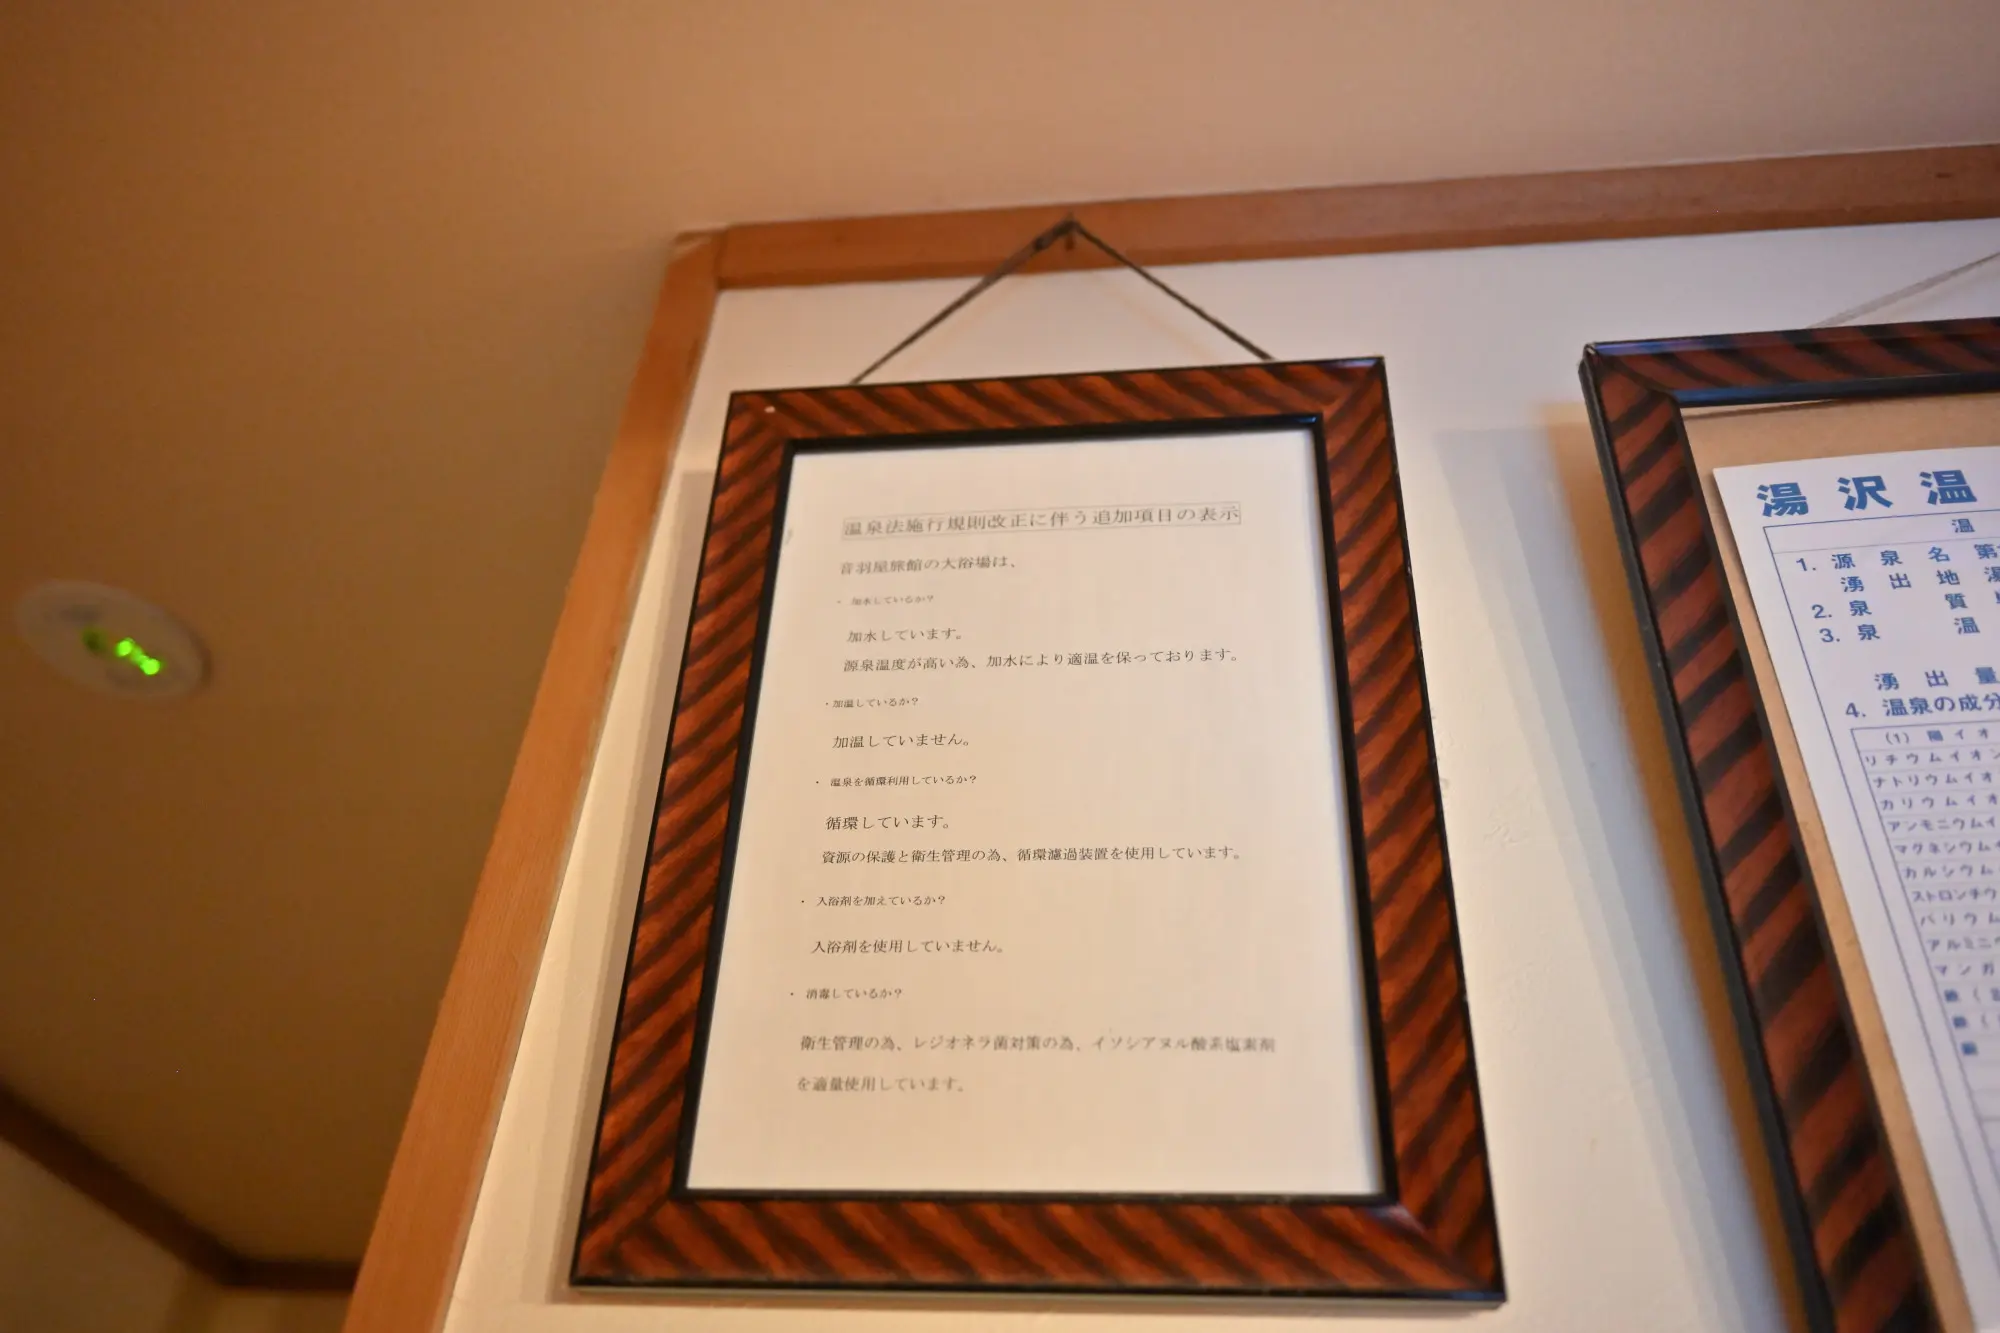 温泉法施行規則改正に伴う追加項目の表示
音羽屋旅館の大浴場は、
・ 加水しているか？
加水しています。
源泉温度が高い為、加水により適温を保っております。
・加温しているか？
加温していません。
・ 温泉を循環利用しているか？
循環しています。
資源の保護と衛生管理の為、循環濾過装置を使用しています。
・ 入浴剤を加えているか？
入浴剤を使用していません。
・ 消毒しているか？
衛生管理の為、レジオネラ菌対策の為、イソシアヌル酸系塩素剤
を適量使用しています。
湯沢温
温
1. 源泉名 第
湧出地 湯
2. 泉質
3. 泉温
湧出量
4. 温泉の成分
(1) 陽イオ
リチウムイオン
ナトリウムイオ
カリウムイオ
アンモニウムイ
マグネシウム
カルシウム
ストロンチウ
バリウム
アルミニ
マンガ